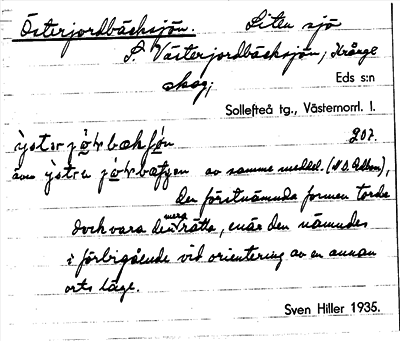 Österjordbäcksjön. Liten sjö
S. Västerjordbäcksjön, Krånge
skog;
Eds s:n
Sollefteå tg., Västernorrl. l.
807.
även av samme meddel. (N.D. Edbom),
den förstnämnda formen torde
dock vara den mera rätta, enär den nämndes
i förbigående vid orientering av en annan
orts läge.
Sven Hiller 1935.